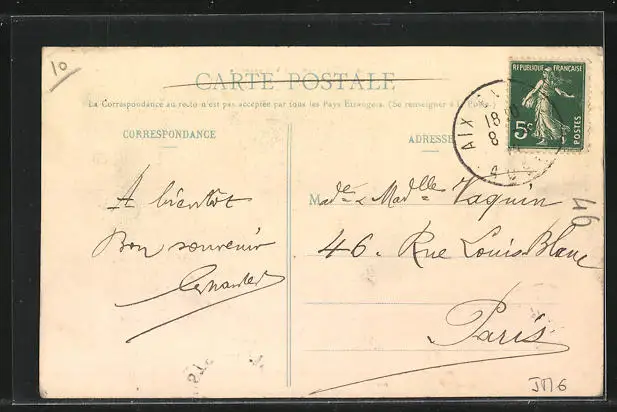 10
CARTE POSTALE
La Correspondance au recto n'est pas acceptée par tous les Pays Etrangers. (Se renseigner à la Poste.)
CORRESPONDANCE
ADRESSE
REPUBLIQUE FRANÇAISE
5c
POSTES
AIX
18
8
A bientôt
Bon souvenir
Made & Madlle Vaquin
46. Rue Louis Blanc
Paris
46
JM6